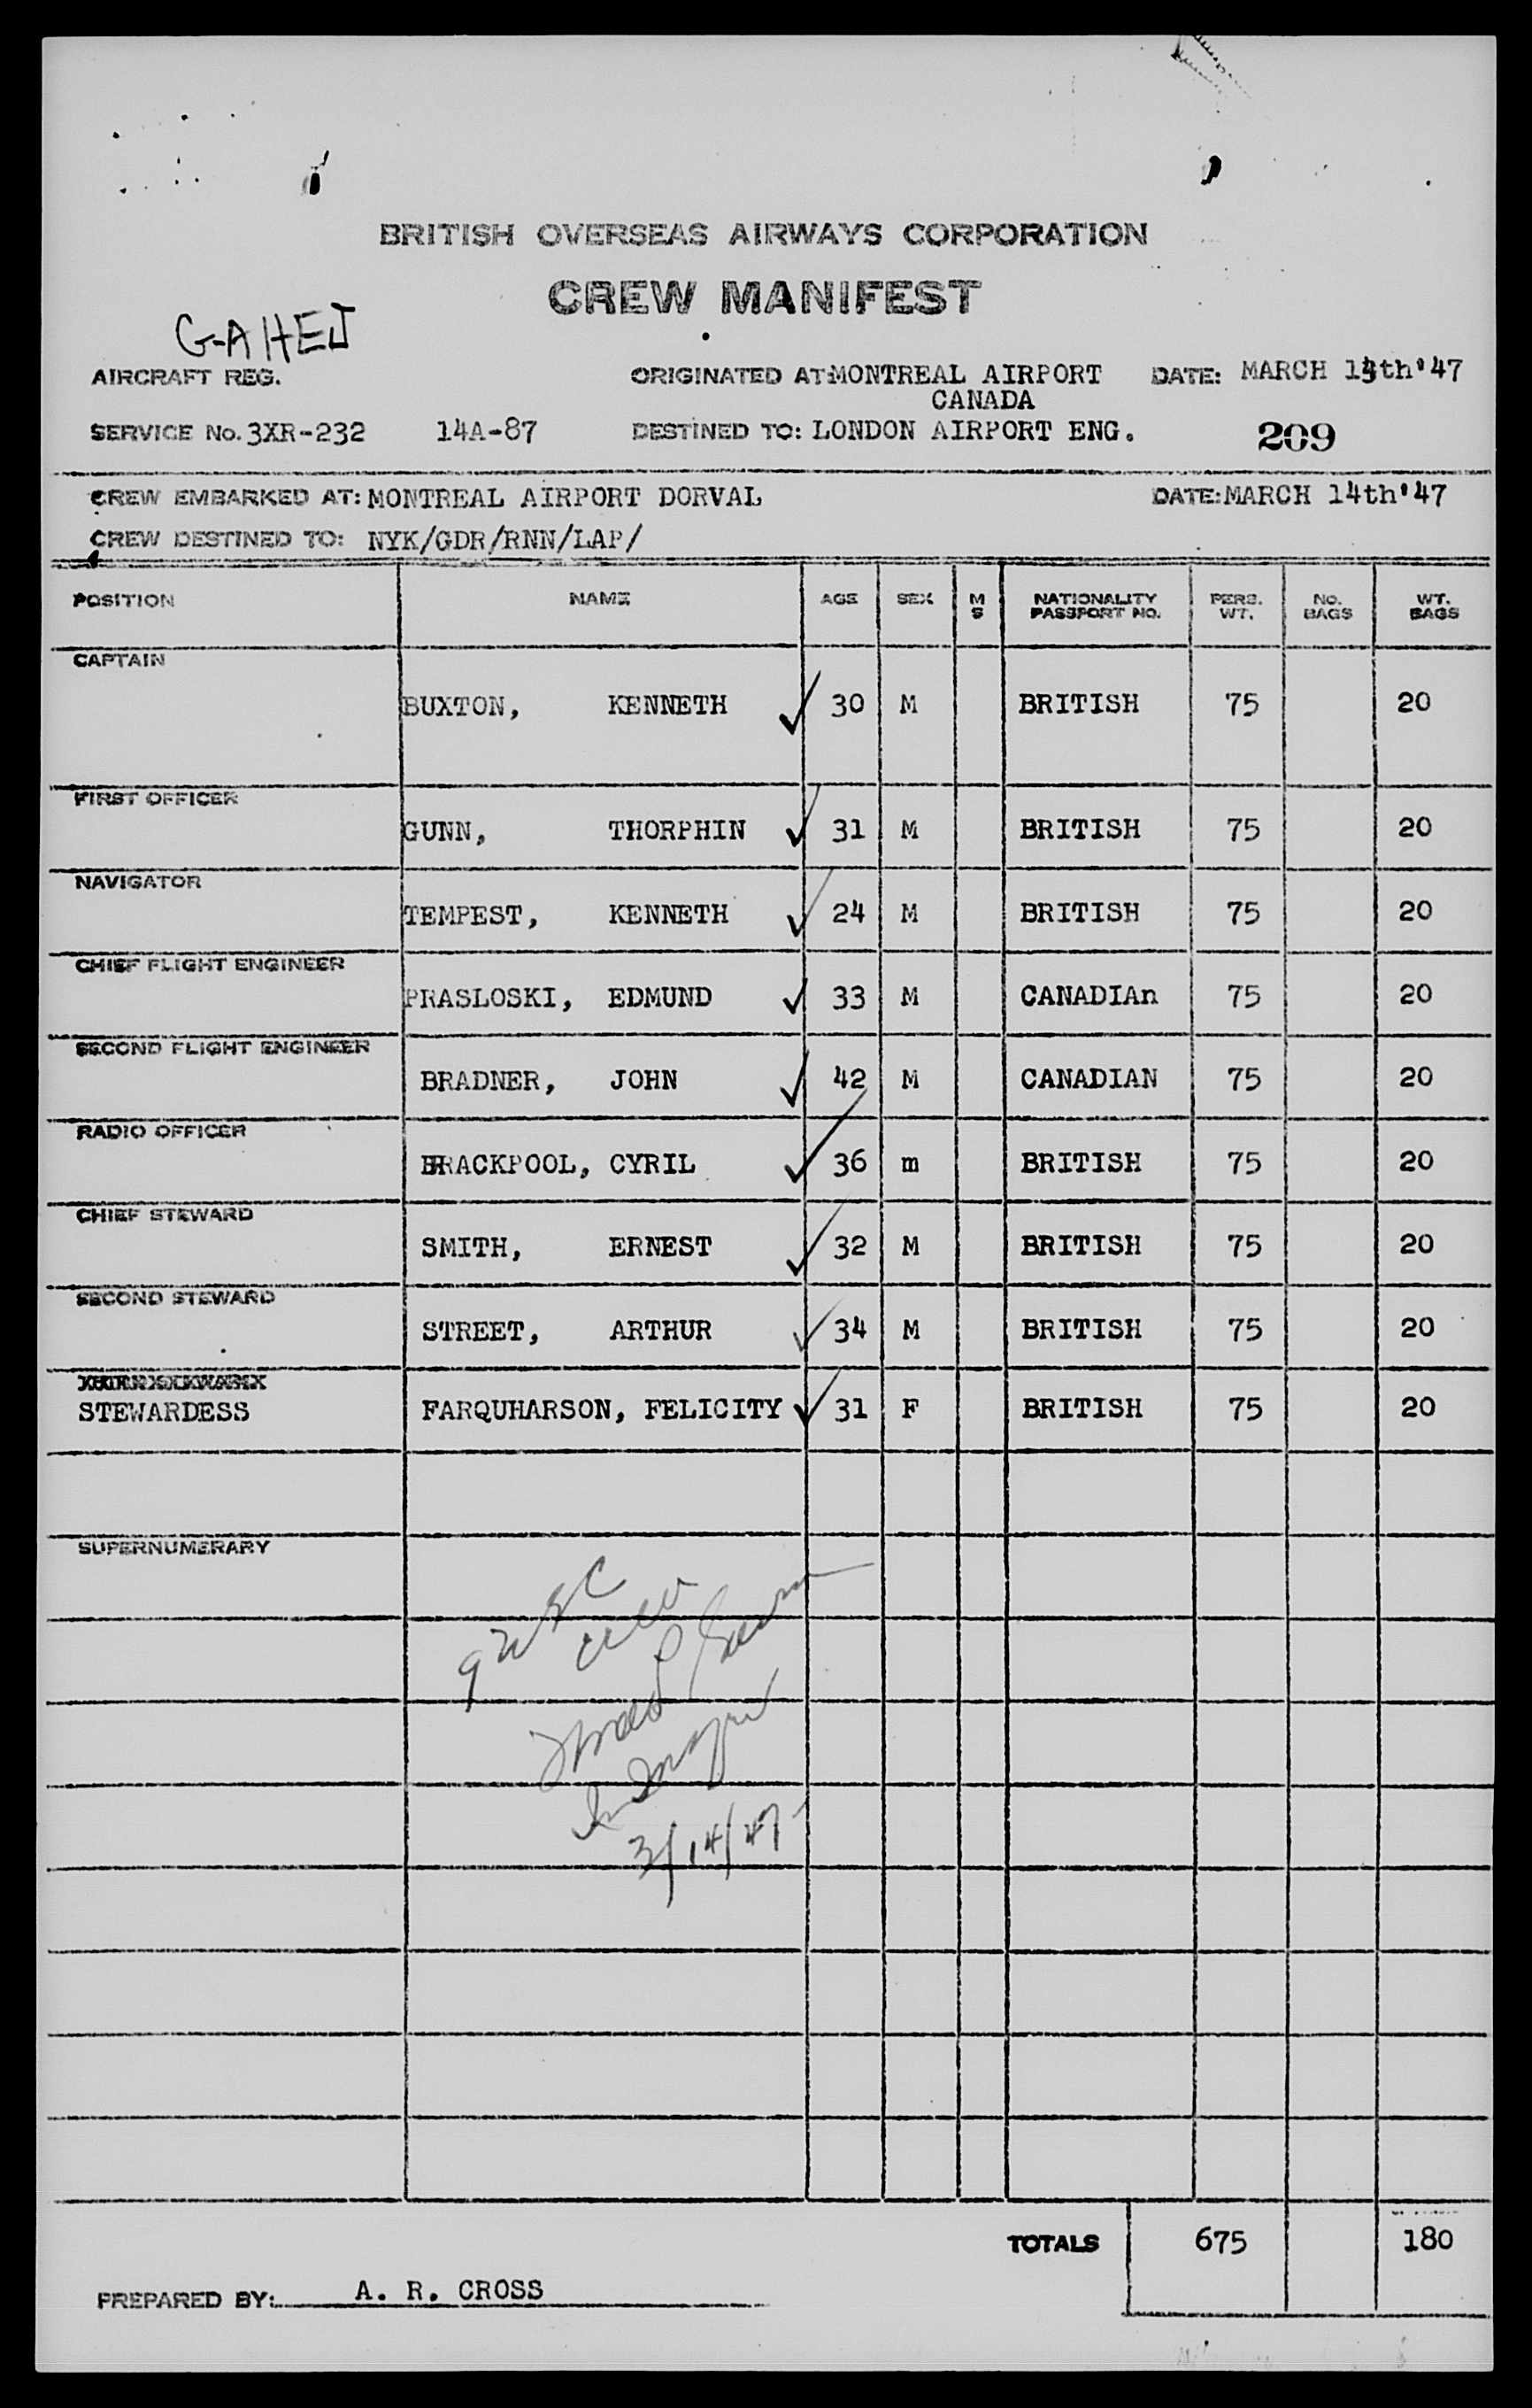 BRITISH OVERSEAS AIRWAYS CORPORATION
CREW MANIFEST
G-AHEJ
AIRCRAFT REG. ORIGINATED AT: MONTREAL AIRPORT DATE: MARCH 14th'47
CANADA
SERVICE No. 3XR-232 14A-87 DESTINED TO: LONDON AIRPORT ENG. 209
CREW EMBARKED AT: MONTREAL AIRPORT DORVAL DATE: MARCH 14th'47
CREW DESTINED TO: NYK/GDR/RNN/LAP/
POSITION NAME AGE SEX M S NATIONALITY PASSPORT NO. PERS. WT. NO. BAGS WT. BAGS
CAPTAIN
BUXTON, KENNETH ✓ 30 M BRITISH 75 20
FIRST OFFICER
GUNN, THORPHIN ✓ 31 M BRITISH 75 20
NAVIGATOR
TEMPEST, KENNETH ✓ 24 M BRITISH 75 20
CHIEF FLIGHT ENGINEER
PRASLOSKI, EDMUND ✓ 33 M CANADIAn 75 20
SECOND FLIGHT ENGINEER
BRADNER, JOHN ✓ 42 M CANADIAN 75 20
RADIO OFFICER
BRACKPOOL, CYRIL ✓ 36 m BRITISH 75 20
CHIEF STEWARD
SMITH, ERNEST ✓ 32 M BRITISH 75 20
SECOND STEWARD
STREET, ARTHUR ✓ 34 M BRITISH 75 20
STEWARDESS FARQUHARSON, FELICITY ✓ 31 F BRITISH 75 20
SUPERNUMERARY
crew
3/14/47
TOTALS 675 180
PREPARED BY: A. R. CROSS